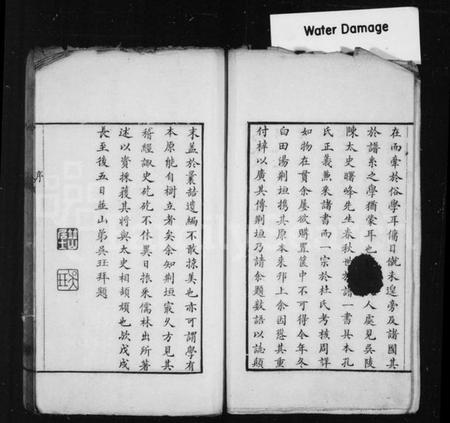 Water Damage
在而霍於俗學耳儒日僦未遑旁及諸國其
於譜系之學猶蒙耳也 人處見吳陵
陳太史曙峰先生春秋世 譜一書其本孔
氏正義兼采諸書而一宗於杜氏考核周詳
如物在貫余屢欲購置篋中不可得今年冬
白田湯荆垣攜其原本來邗上余因慫其重
付梓以廣其傳荆垣乃請余題數語以誌顛
末蓋於囊喆遺編不敢掠美也亦可謂學有
本原能自樹立者矣余知荆垣最久方見其
稽經諏史矻矻不休異日振采儒林出所著
述以資採獲其將與太史相頡頏也歟戊戌
長至後五日並山弟吳玨拜題
序